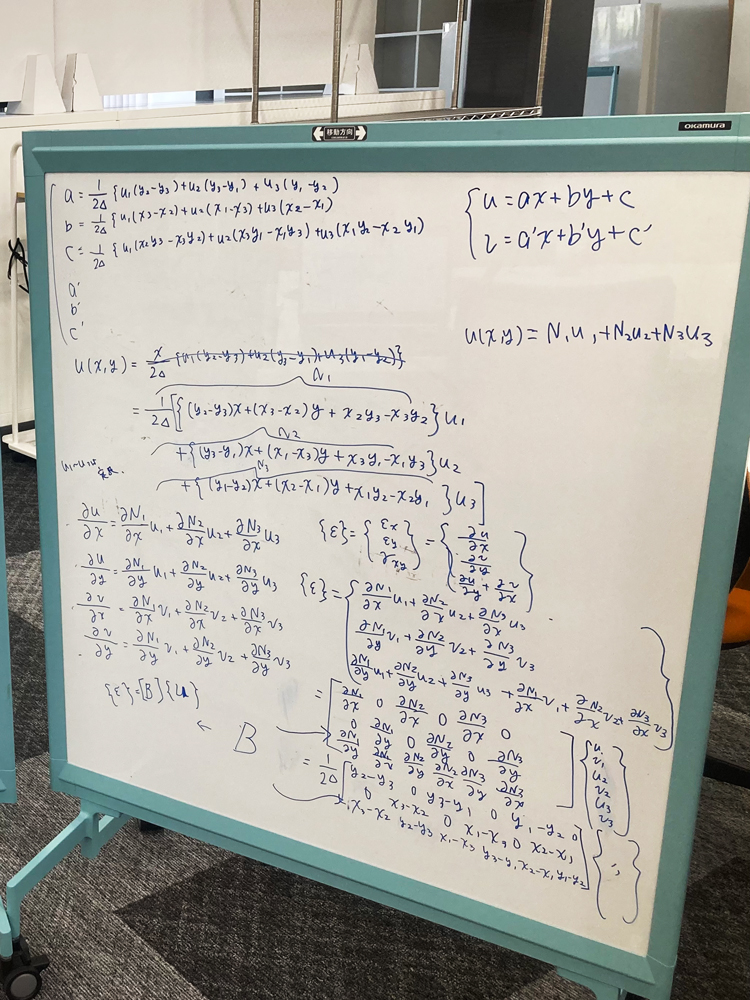 移動方向
OKAMURA
a = 1/2Δ {u₁(y₂-y₃)+u₂(y₃-y₁)+u₃(y₁-y₂)}
b = 1/2Δ {u₁(x₃-x₂)+u₂(x₁-x₃)+u₃(x₂-x₁)
c = 1/2Δ {u₁(x₂y₃-x₃y₂)+u₂(x₃y₁-x₁y₃)+u₃(x₁y₂-x₂y₁)
a'
b'
c'
u=ax+by+c
v=a'x+b'y+c'
u(x,y)=N₁u₁+N₂u₂+N₃u₃
u(x,y) = x/2Δ {u₁(y₂-y₃)+u₂(y₃-y₁)+u₃(y₁-y₂)}
N₁
= 1/2Δ [{(y₂-y₃)x+(x₃-x₂)y+x₂y₃-x₃y₂}u₁
N₂
+{(y₃-y₁)x+(x₁-x₃)y+x₃y₁-x₁y₃}u₂
N₃
+{(y₁-y₂)x+(x₂-x₁)y+x₁y₂-x₂y₁}u₃]
∂u/∂x = ∂N₁/∂x u₁+∂N₂/∂x u₂+∂N₃/∂x u₃
∂u/∂y = ∂N₁/∂y u₁+∂N₂/∂y u₂+∂N₃/∂y u₃
∂v/∂x = ∂N₁/∂x v₁+∂N₂/∂x v₂+∂N₃/∂x v₃
∂v/∂y = ∂N₁/∂y v₁+∂N₂/∂y v₂+∂N₃/∂y v₃
{ε}=[B]{u}
← B
{ε}={εx εy γxy}={∂u/∂x ∂v/∂y ∂u/∂y+∂v/∂x}
{ε}={∂N₁/∂x u₁+∂N₂/∂x u₂+∂N₃/∂x u₃
∂N₁/∂y v₁+∂N₂/∂y v₂+∂N₃/∂y v₃
∂N₁/∂y u₁+∂N₂/∂y u₂+∂N₃/∂y u₃+∂N₁/∂x v₁+∂N₂/∂x v₂+∂N₃/∂x v₃}
= [∂N₁/∂x 0 ∂N₂/∂x 0 ∂N₃/∂x 0
0 ∂N₁/∂y 0 ∂N₂/∂y 0 ∂N₃/∂y
∂N₁/∂y ∂N₁/∂x ∂N₂/∂y ∂N₂/∂x ∂N₃/∂y ∂N₃/∂x] {u₁ v₁ u₂ v₂ u₃ v₃}
= 1/2Δ [y₂-y₃ 0 y₃-y₁ 0 y₁-y₂ 0
0 x₃-x₂ 0 x₁-x₃ 0 x₂-x₁
x₃-x₂ y₂-y₃ x₁-x₃ y₃-y₁ x₂-x₁ y₁-y₂] { }